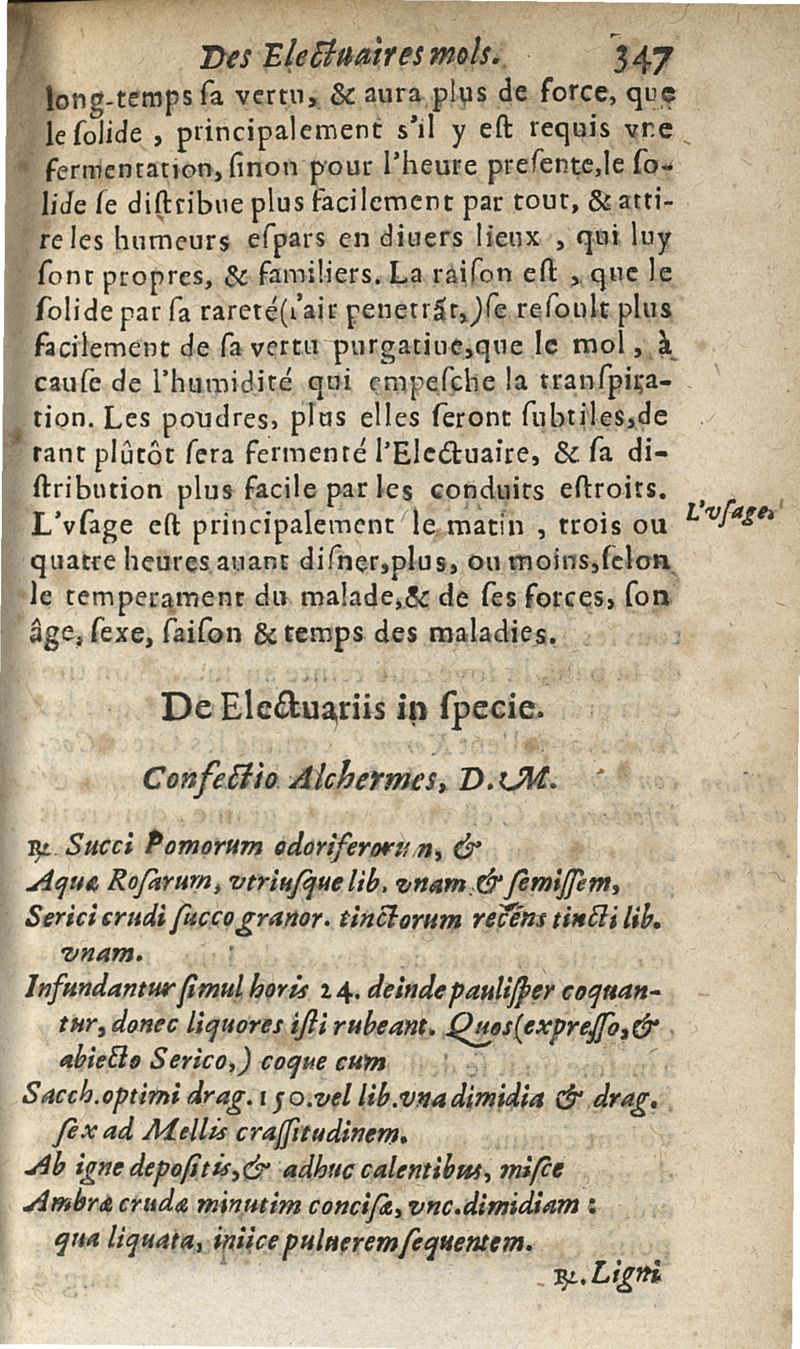 Des Electuaires mols. 347
long-temps ſa vertu, & aura plus de force, que
le ſolide, principalement s'il y eſt requis vne
fermentation, ſinon pour l'heure preſente, le ſo-
lide ſe diſtribue plus facilement par tout, & atti-
re les humeurs eſpars en diuers lieux, qui luy
ſont propres, & familiers. La raiſon eſt, que le
ſolide par ſa rareté (l'air penetrãt,) ſe reſoult plus
facilement de ſa vertu purgatiue, que le mol, à
cauſe de l'humidité qui empeſche la tranſpira-
tion. Les poudres, plus elles ſeront ſubtiles, de
tant plûtôt ſera fermenté l'Electuaire, & ſa di-
ſtribution plus facile par les conduits eſtroits.
L'vſage eſt principalement le matin, trois ou
L'vſage.
quatre heures auant diſner, plus, ou moins, ſelon
le temperament du malade, & de ſes forces, ſon
âge, ſexe, ſaiſon & temps des maladies.
De Electuariis in ſpecie.
Confectio Alchermes, D. M.
℞. Succi Pomorum odoriferorum, &
Aquæ Roſarum, vtriuſque lib. vnam & ſemiſſem,
Serici crudi ſucco granor. tinctorum recẽns tincti lib.
vnam.
Infundantur ſimul horis 24. deinde pauliſper coquan-
tur, donec liquores iſti rubeant. Quos (expreſſo, &
abiecto Serico,) coque cum
Sacch. optimi drag. 150. vel lib. vna dimidia & drag.
ſex ad Mellis craſſitudinem.
Ab igne depoſitis, & adhuc calentibus, miſce
Ambræ crudæ minutim conciſæ, vnc. dimidiam :
qua liquata, iniice puluerem ſequentem.
℞. Ligni